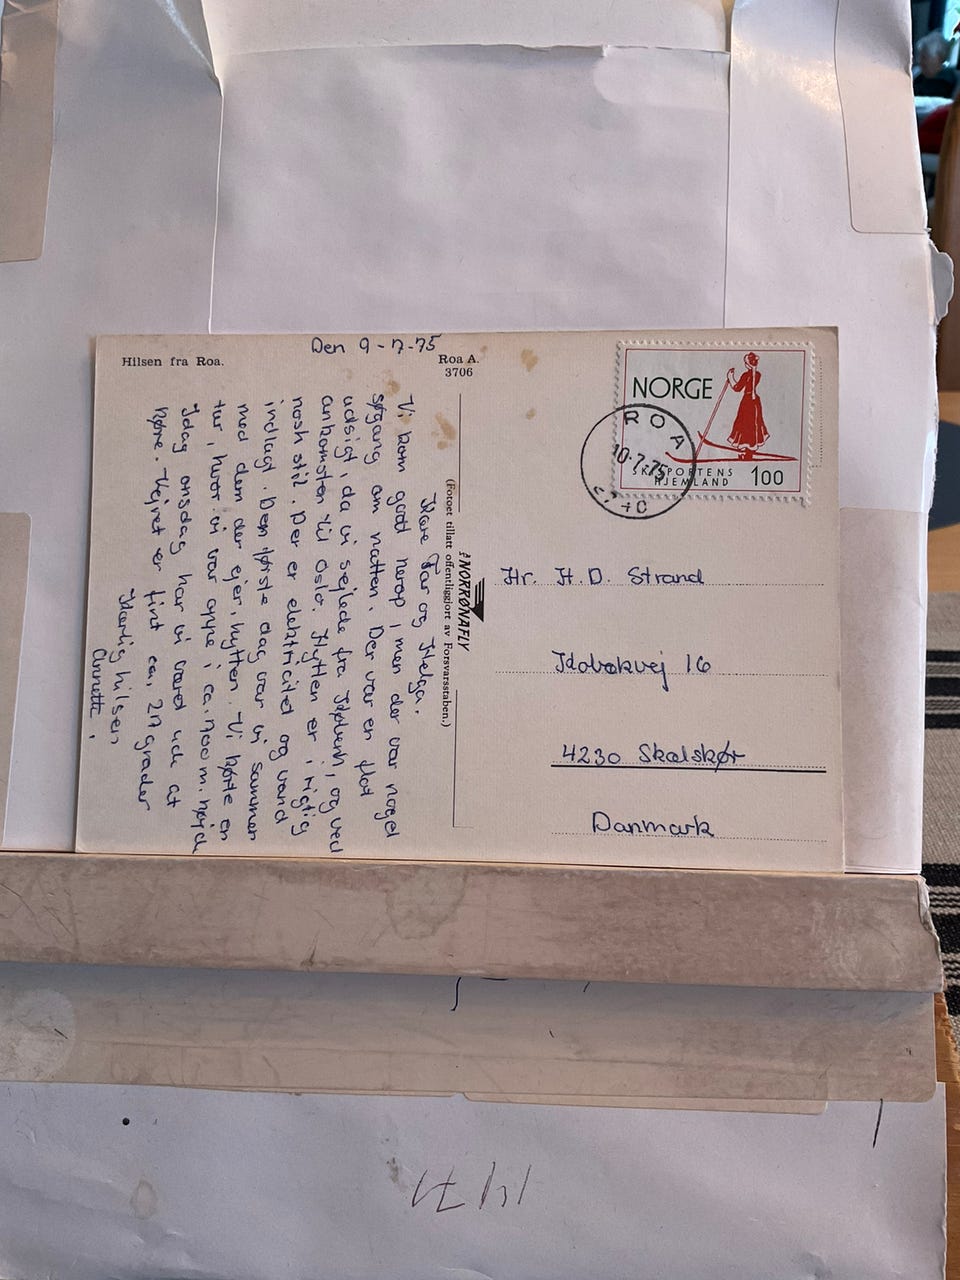 Hilsen fra Roa.
Den 9-7-75
Roa A.
3706
Kære Far og Helga.
Vi kom godt herop, men der var noget
søgang om natten. Der var en flot
udsigt, da vi sejlede fra Kbhvn, og ved
ankomsten til Oslo. Hytten er i rigtig
norsk stil. Der er elektricitet og vand
indlagt. Den første dag var vi sammen
med dem der ejer hytten. Vi kørte en
tur, hvor vi var oppe i ca. 700 m. højde
Idag onsdag har vi været ude at
køre. Vejret er fint ca. 27 grader
Kærlig hilsen
Annette.
(Fotoet tillatt offentliggjort av Forsvarsstaben.)
NORRØNAFLY
NORGE
SKISPORTENS
HJEMLAND
100
ROA
10.7.75
Hr. H.D. Strand
16
4230 Skælskør
Danmark